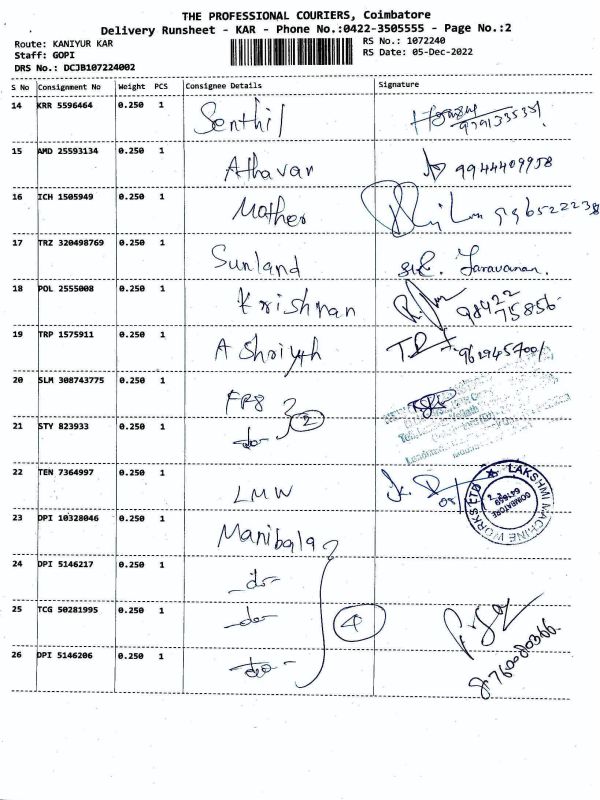 THE PROFESSIONAL COURIERS, Coimbatore
Delivery Runsheet - KAR - Phone No.:0422-3505555 - Page No.:2
Route: KANIYUR KAR
RS No.: 1072240
Staff: GOPI
RS Date: 05-Dec-2022
DRS No.: DCJB107224002
S No Consignment No Weight PCS Consignee Details Signature
14 KRR 5596464 0.250 1 Senthil
15 AMD 25593134 0.250 1 Athavan 9944409958
16 ICH 1505949 0.250 1 Mather
17 TRZ 320498769 0.250 1 Sunland Saravanan.
18 POL 2555008 0.250 1 Krishnan 98422
75856
19 TRP 1575911 0.250 1
20 SLM 308743775 0.250 1
21 STY 823933 0.250 1 -do- 2
22 TEN 7364997 0.250 1 LMW
LAKSHMI MACHINE WORKS LTD
COIMBATORE
23 DPI 10328046 0.250 1 Manibala
24 DPI 5146217 0.250 1 -do-
25 TCG 50281995 0.250 1 -do- 4
26 DPI 5146206 0.250 1 -do-